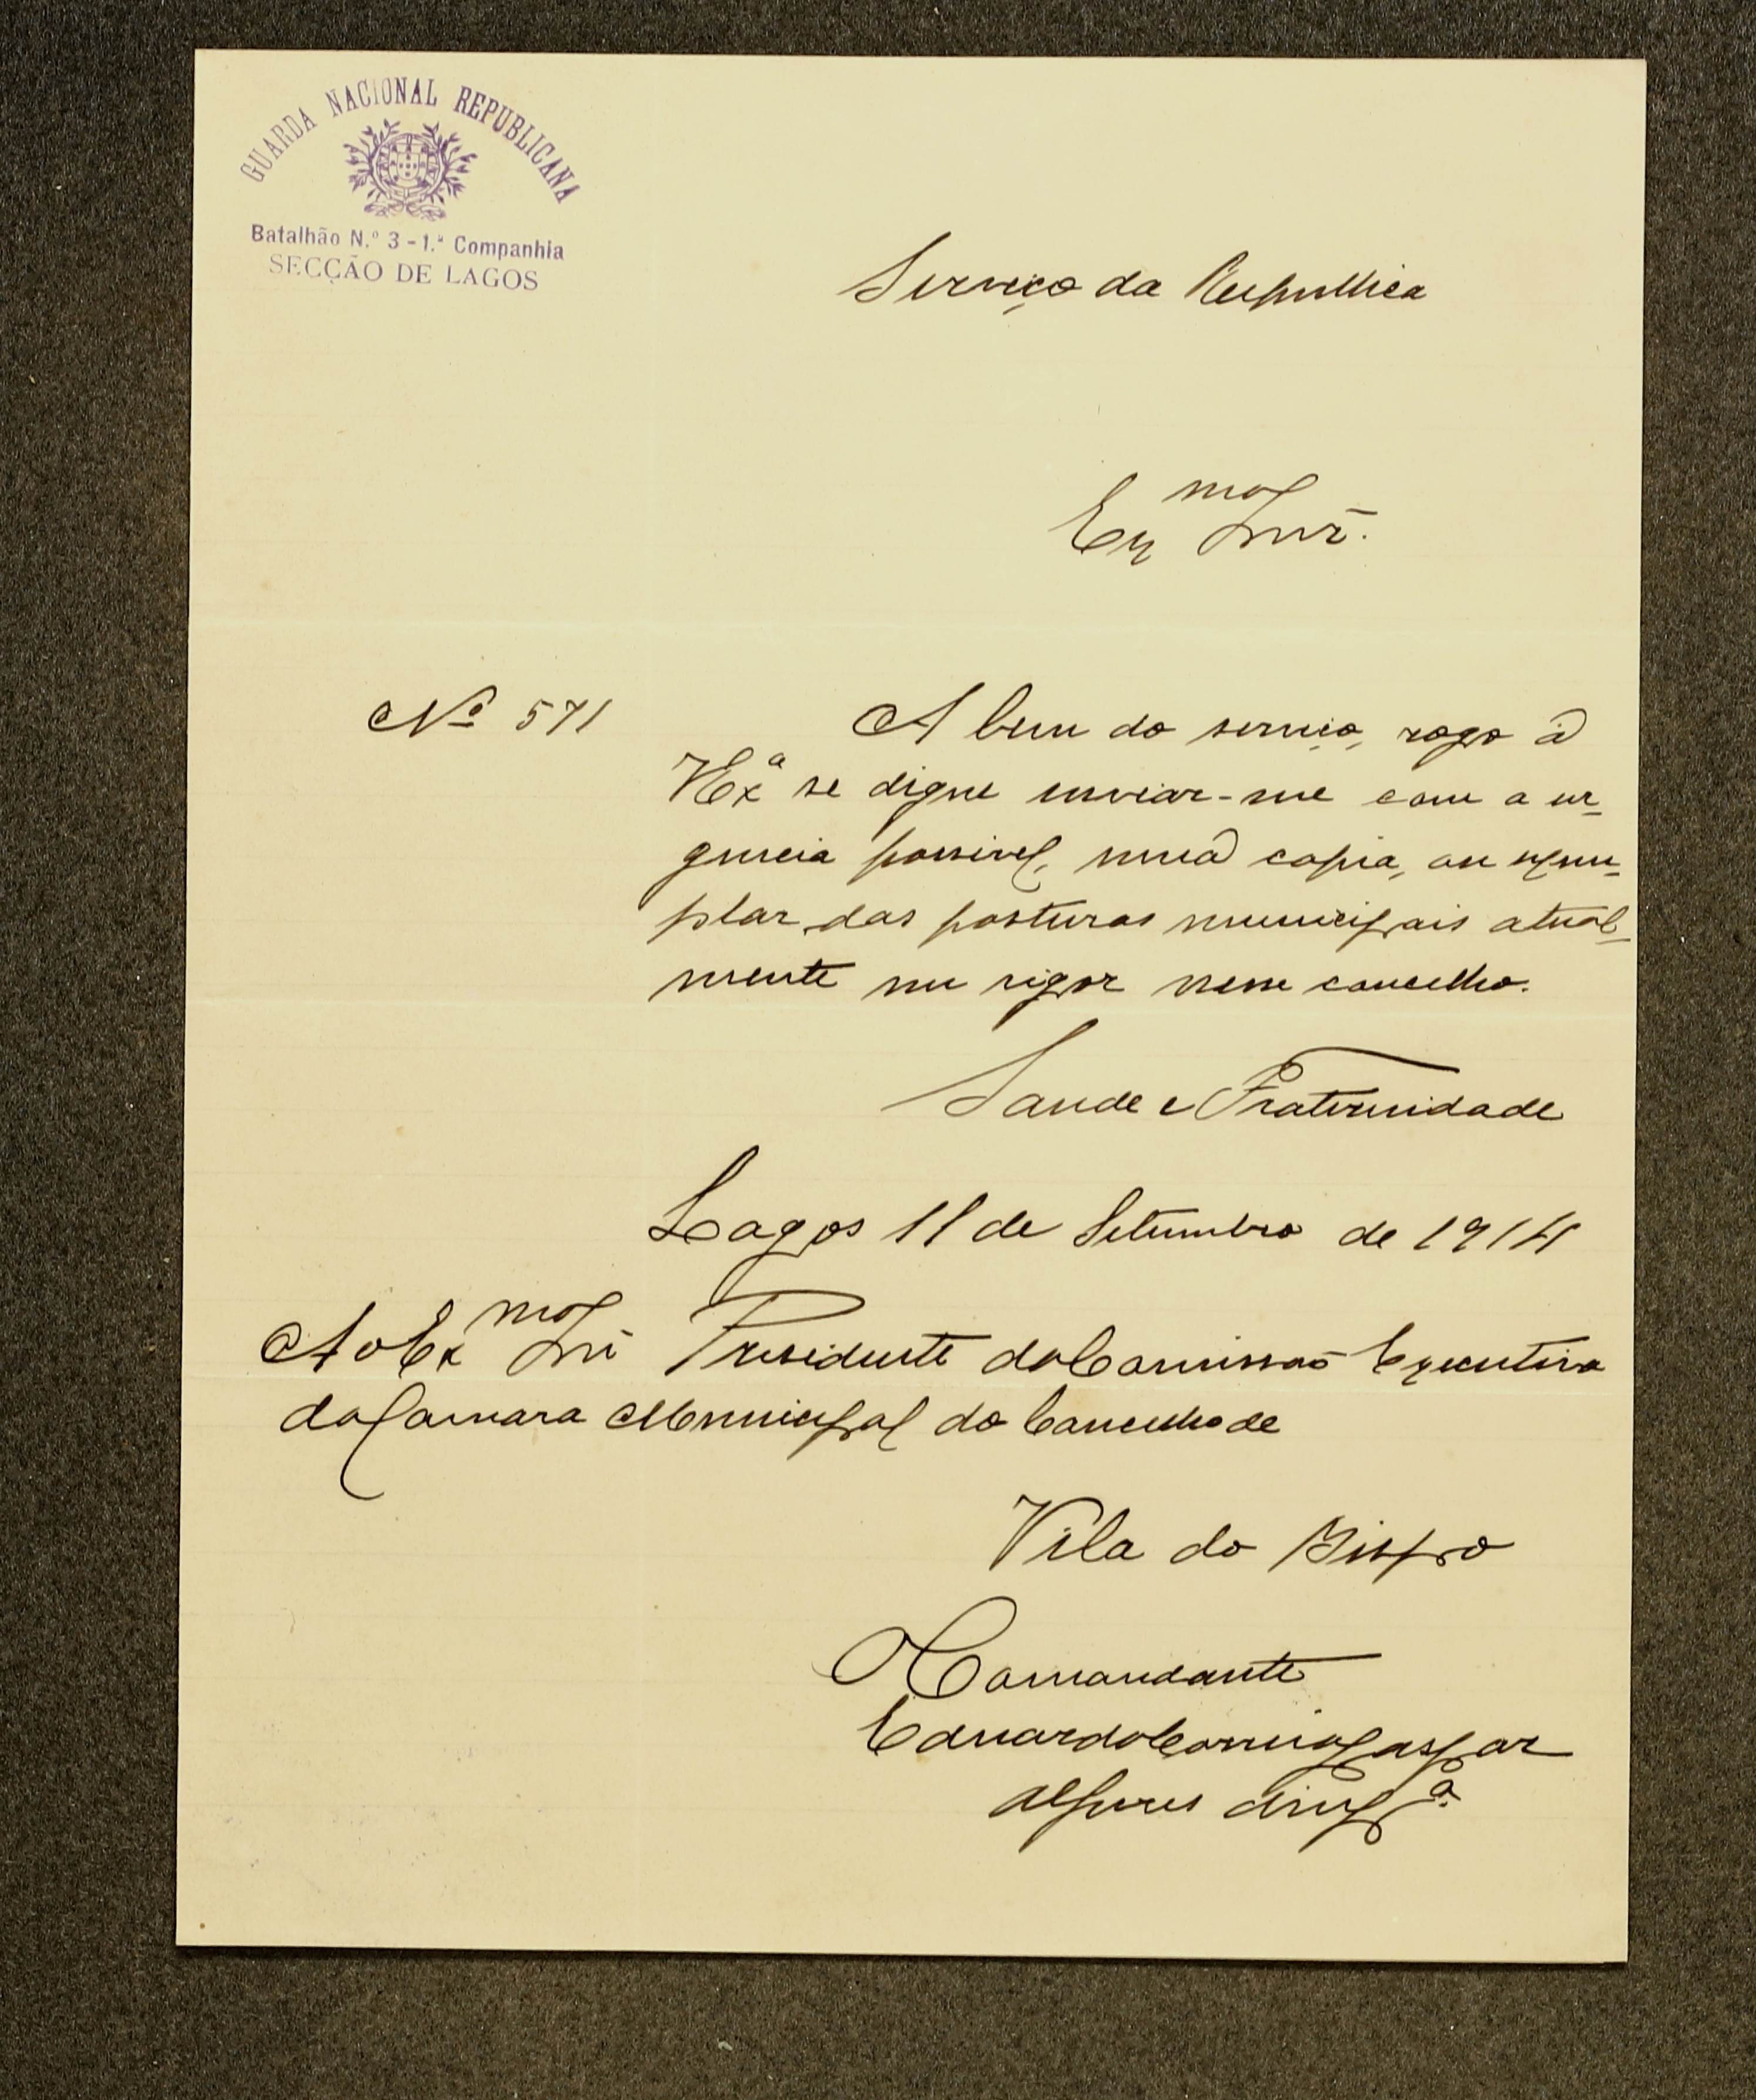 GUARDA NACIONAL REPUBLICANA
Batalhão N.º 3 - 1.ª Companhia
SECÇÃO DE LAGOS
Serviço da Republica
Ex mo Snr.
Nº 571
A bem do serviço, rogo a
V Exª se digne enviar-me com a ur-
gencia possivel, uma copia, ou exem-
plar, das posturas municipais atual-
mente em vigor nesse concelho.
Saude e Fraternidade
Lagos 11 de Setembro de 1914
Ao Ex mo Snr Presidente da Comissão Executiva
da Camara Municipal do Concelho de
Vila do Bispo
O Comandante
Eduardo Correia Gaspar
Alferes